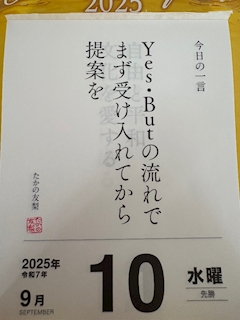 2025
今日の一言
Yes・Butの流れで
まず受け入れてから
提案を
たかの友梨
2025年
令和7年
9月
SEPTEMBER
10
水曜
先勝